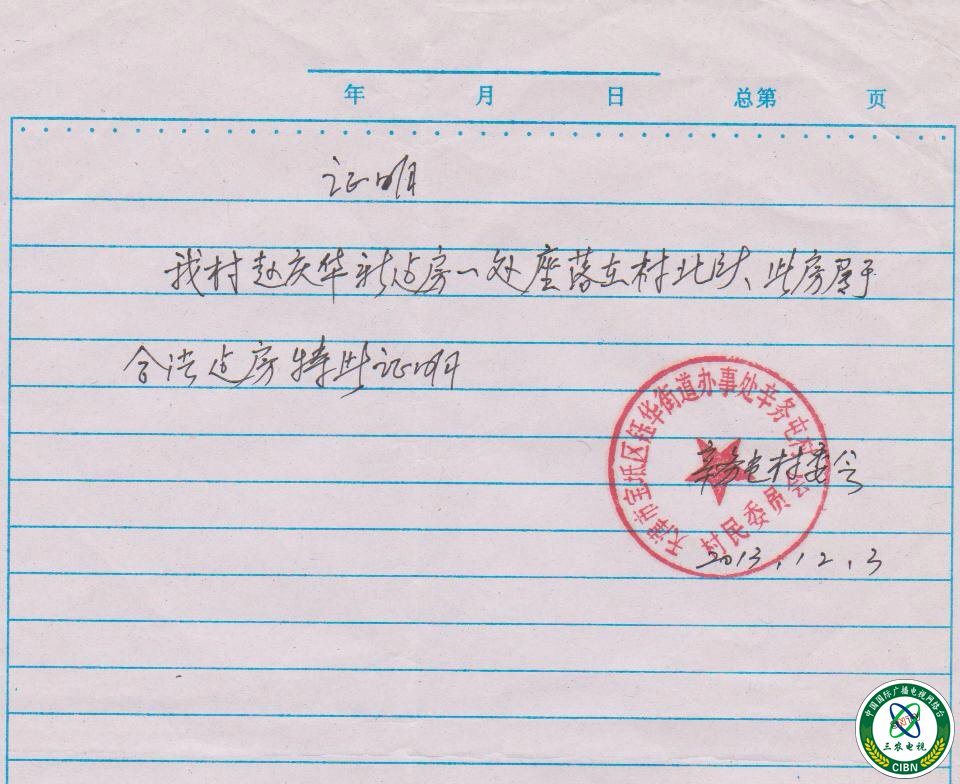 年 月 日 总第 页
证明
我村赵庆华新占房一处座落在村北头、此房属于
合法占房特此证明
天津市宝坻区钰华街道办事处辛务屯村
村民委员会
辛务屯村委会
2013.12.3
中国国际广播电视网络台
三农电视
CIBN